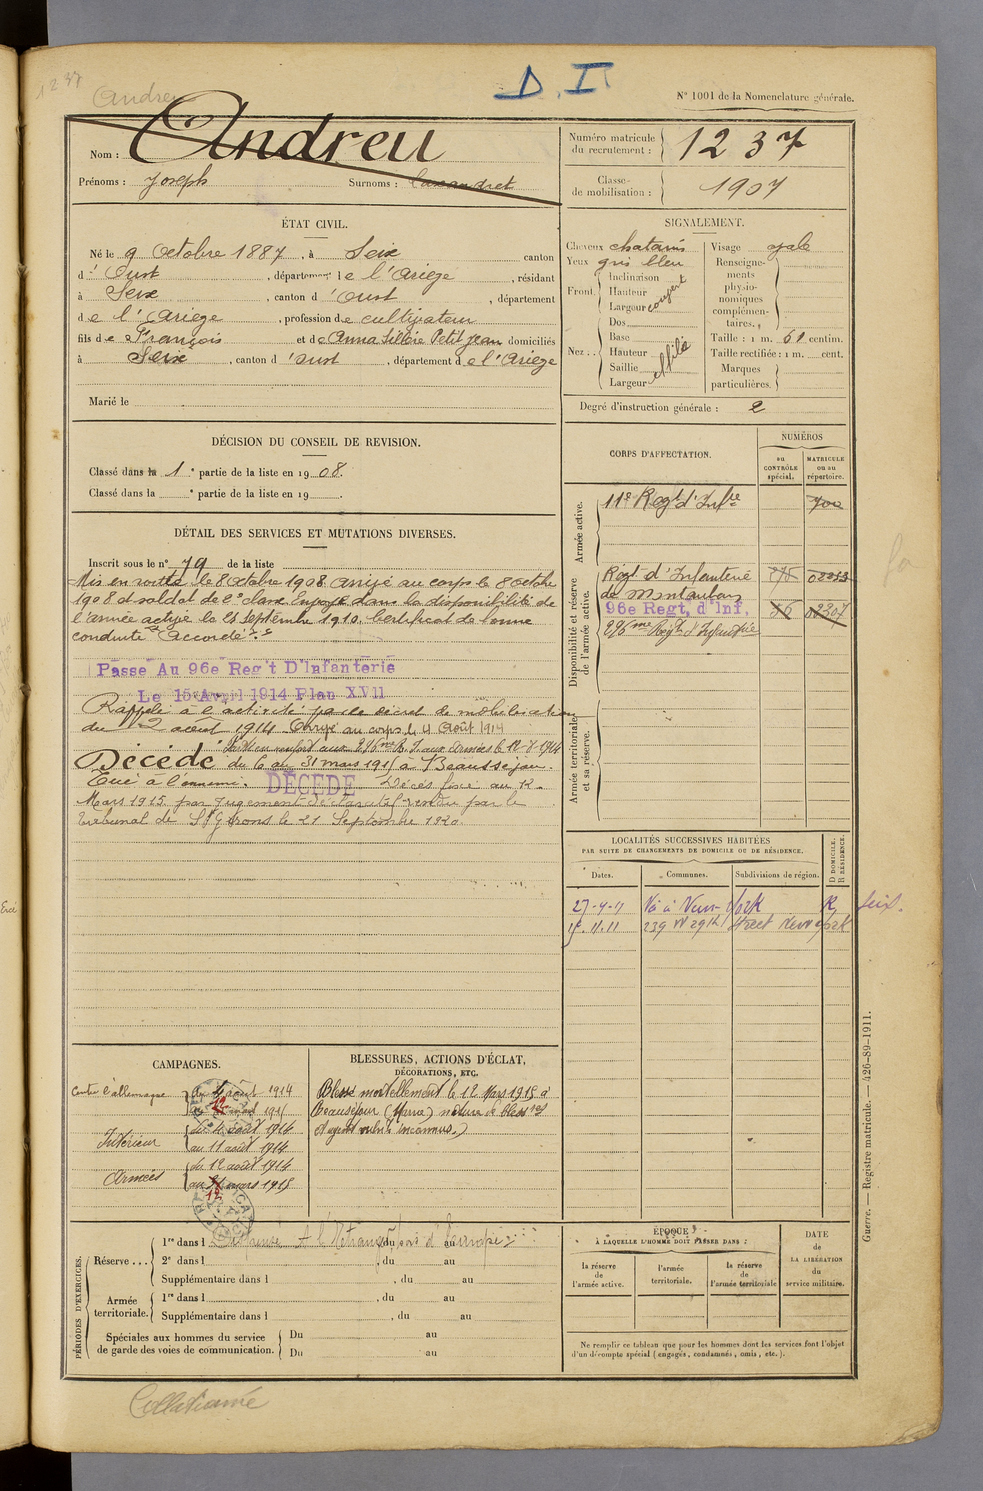 1237
Andreu
D. I
N° 1001 de la Nomenclature générale.
Nom : Andreu
Prénoms : Joseph Surnoms :
Numéro matricule du recrutement : 1237
Classe de mobilisation : 1907
ÉTAT CIVIL.
Né le 9 Octobre 1887, à Seix canton
d'Oust, département de l'Ariège, résidant
à Seix, canton d'Oust, département
de l'Ariège, profession de cultivateur
fils de François et de Anna Sillère Petit jean domiciliés
à Seix, canton d'oust, département de l'Ariège
Marié le
SIGNALEMENT.
Cheveux chatains
Yeux gris bleu
Front. Inclinaison
Hauteur
Largeur
Nez. Dos
Base
Hauteur
Saillie
Largeur
effilé
Visage ovale
Renseignements physionomiques complémentaires.
Taille : 1 m. 61 centim.
Taille rectifiée : 1 m. cent.
Marques particulières.
Degré d'instruction générale : 2
DÉCISION DU CONSEIL DE REVISION.
Classé dans la 1e partie de la liste en 1908.
Classé dans la e partie de la liste en 19 .
DÉTAIL DES SERVICES ET MUTATIONS DIVERSES.
Inscrit sous le n° 79 de la liste
Mis en route le 8 Octobre 1908 arrivé au corps le 8 octobre
1908 et soldat de 2e classe Envoyé dans la disponibilité de
l'armée active le 25 Septembre 1910. Certificat de bonne
conduite "Accordé".
Passé Au 96e Reg't D'Infanterie
Le 15 Avril 1914 Plan XVII
Rappelé à l'activité par le décret de mobilisation
du 2 août 1914 Arrivé au corps le 4 Août 1914
Décédé du 6 au 31 mars 1915 à Beauséjour.
Tué à l'ennemi. DÉCÉDÉ Décès fixé au 12
Mars 1915 par jugement déclaratif rendu par le
tribunal de St Girons le 21 Septembre 1920.
CORPS D'AFFECTATION.
NUMÉROS
au CONTRÔLE spécial.
MATRICULE ou au répertoire.
Armée active.
11e Regt d'Infie
Disponibilité et réserve de l'armée active.
Régt d'Infanterie
de Montauban
96e Regt, d'Inf.
296me Regt d'Infanterie
Armée territoriale et sa réserve.
LOCALITÉS SUCCESSIVES HABITÉES
PAR SUITE DE CHANGEMENTS DE DOMICILE OU DE RÉSIDENCE.
Dates.
Communes.
Subdivisions de région.
D DOMICILE. R RÉSIDENCE.
27-4-11 Va à New-York R Seix.
15.11.11 239 W 29th Street New York
CAMPAGNES.
Contre l'allemagne du 4 août 1914
au 12 mars 1915
Intérieur du 4 août 1914
au 11 août 1914
Armées du 12 août 1914
au 31 mars 1915
12
BLESSURES, ACTIONS D'ÉCLAT,
DÉCORATIONS, ETC.
Blessé mortellement le 12 Mars 1915 à
Beauséjour (Marne) nature de blessures
et agent vulnt inconnus.)
PÉRIODES D'EXERCICES.
Réserve ... 1re dans l , du au
2e dans l , du au
Supplémentaire dans l , du au
Armée territoriale. 1re dans l , du au
Supplémentaire dans l , du au
Spéciales aux hommes du service de garde des voies de communication. Du au
Du au
ÉPOQUE
À LAQUELLE L'HOMME DOIT PASSER DANS :
la réserve de l'armée active.
l'armée territoriale.
la réserve de l'armée territoriale
DATE de LA LIBÉRATION du service militaire.
Ne remplir ce tableau que pour les hommes dont les services font l'objet
d'un décompte spécial (engagés, condamnés, omis, etc.).
Guerre. — Registre matricule. — 426-89-1911.
Collationné